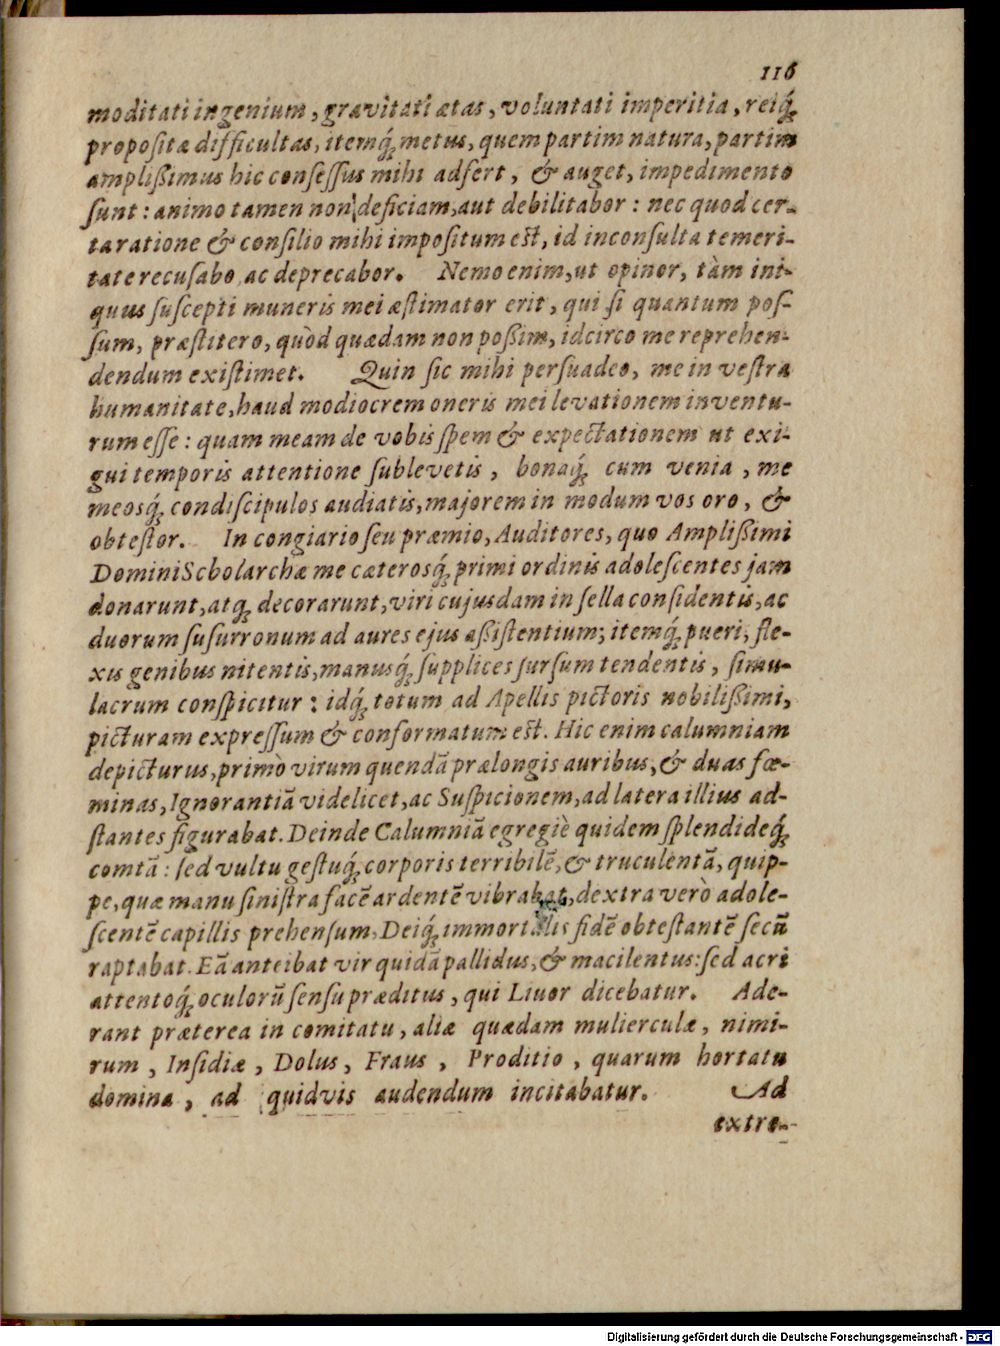 116
moditati ingenium, gravitati ætas, voluntati imperitia, reiq́;
propositæ difficultas, itemq́; metus, quem partim natura, partim
amplißimus hic consessus mihi adfert, & auget, impedimento
sunt: animo tamen non deficiam, aut debilitabor: nec quod cer-
ta ratione & consilio mihi impositum est, id inconsulta temeri-
tate recusabo, ac deprecabor. Nemo enim, ut opinor, tàm ini-
quus suscepti muneris mei æstimator erit, qui si quantum pos-
sum, præstitero, quòd quædam non poßim, idcirco me reprehen-
dendum existimet. Quin sic mihi persuadeo, me in vestra
humanitate, haud modiocrem oneris mei levationem inventu-
rum esse: quam meam de vobis spem & expectationem ut exi-
gui temporis attentione sublevetis, bonaq́; cum venia, me
meosq́; condiscipulos audiatis, majorem in modum vos oro, &
obtestor. In congiario seu præmio, Auditores, quo Amplißimi
Domini Scholarchæ me cæterosq́; primi ordinis adolescentes jam
donarunt, atq; decorarunt, viri cujusdam in sella considentis, ac
duorum susurronum ad aures ejus aßistentium; itemq́; pueri, fle-
xis genibus nitentis, manusq́; supplices sursum tendentis, simu-
lacrum conspicitur: idq́; totum ad Apellis pictoris nobilißimi,
picturam expressum & conformatum est. Hic enim calumniam
depicturus, primò virum quendā prælongis auribus, & duas fœ-
minas, Ignorantiā videlicet, ac Suspicionem, ad latera illius ad-
stantes figurabat. Deinde Calumniā egregiè quidem splendideq́;
comtā: sed vultu gestuq́; corporis terribilē, & truculentā, quip-
pe, quæ manu sinistra facē ardentē vibrabat, dextra verò adole-
scentē capillis prehensum, Deiq́; immortalis fidē obtestantē secū
raptabat. Eā anteibat vir quidā pallidus, & macilentus: sed acri
attentoq́; oculorū sensu præditus, qui Livor dicebatur. Ade-
rant præterea in comitatu, aliæ quædam mulierculæ, nimi-
rum, Insidiæ, Dolus, Fraus, Proditio, quarum hortatu
domina, ad quidvis audendum incitabatur. Ad
extre-
Digitalisierung gefördert durch die Deutsche Forschungsgemeinschaft - DFG